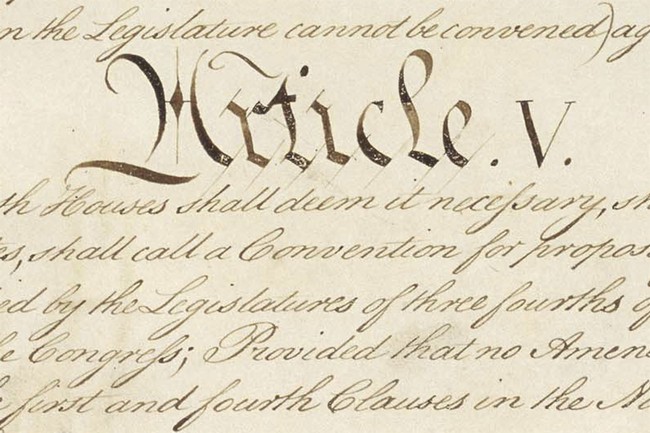 n the Legislature cannot be convened) ag
Article. V.
th Houses shall deem it neceſsary, sh
es, shall call a Convention for propos
ied by the Legislatures of three fourths of
e Congreſs; Provided that no Amen
e first and fourth Clauses in the N